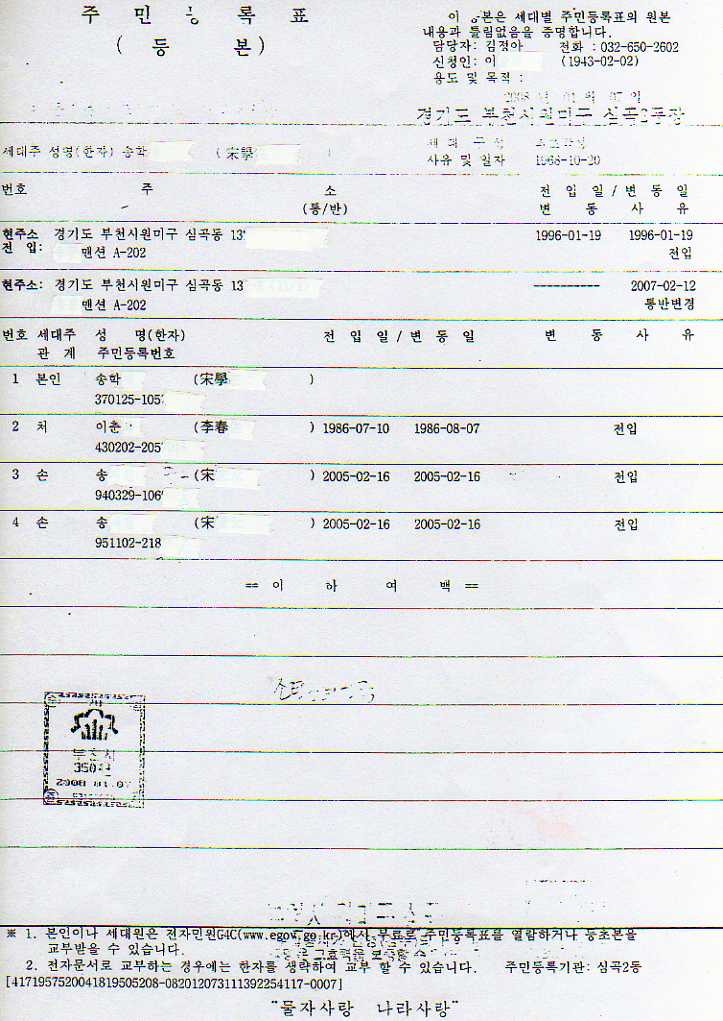 주 민 등 록 표
( 등 본 )
이 등본은 세대별 주민등록표의 원본
내용과 틀림없음을 증명합니다.
담당자: 김정아 전화 : 032-650-2602
신청인: 이 (1943-02-02)
용도 및 목적 :
2008 년 01 월 07 일
경기도 부천시원미구 심곡2동장
세대주 성명(한자) 송학 ( 宋學 )
사유 및 일자 1968-10-20
번호 주 소 전 입 일 / 변 동 일
(통/반) 변 동 사 유
현주소 경기도 부천시원미구 심곡동 13 1996-01-19 1996-01-19
전 입: 맨션 A-202 전입
현주소: 경기도 부천시원미구 심곡동 13 ---------- 2007-02-12
맨션 A-202 통반변경
번호 세대주 성 명(한자) 전 입 일 / 변 동 일 변 동 사 유
관 계 주민등록번호
1 본인 송학 (宋學 )
370125-105
2 처 이춘 (李春 ) 1986-07-10 1986-08-07 전입
430202-205
3 손 송 (宋 ) 2005-02-16 2005-02-16 전입
940329-106
4 손 송 (宋 ) 2005-02-16 2005-02-16 전입
951102-218
== 이 하 여 백 ==
부천시
350원
2008 01.07
※ 1. 본인이나 세대원은 전자민원G4C(www.egov.go.kr)에서 무료로 주민등록표를 열람하거나 등초본을
교부받을 수 있습니다.
2. 전자문서로 교부하는 경우에는 한자를 생략하여 교부 할 수 있습니다. 주민등록기관: 심곡2동
[4171957520041819505208-082012073111392254117-0007]
"물자사랑 나라사랑"